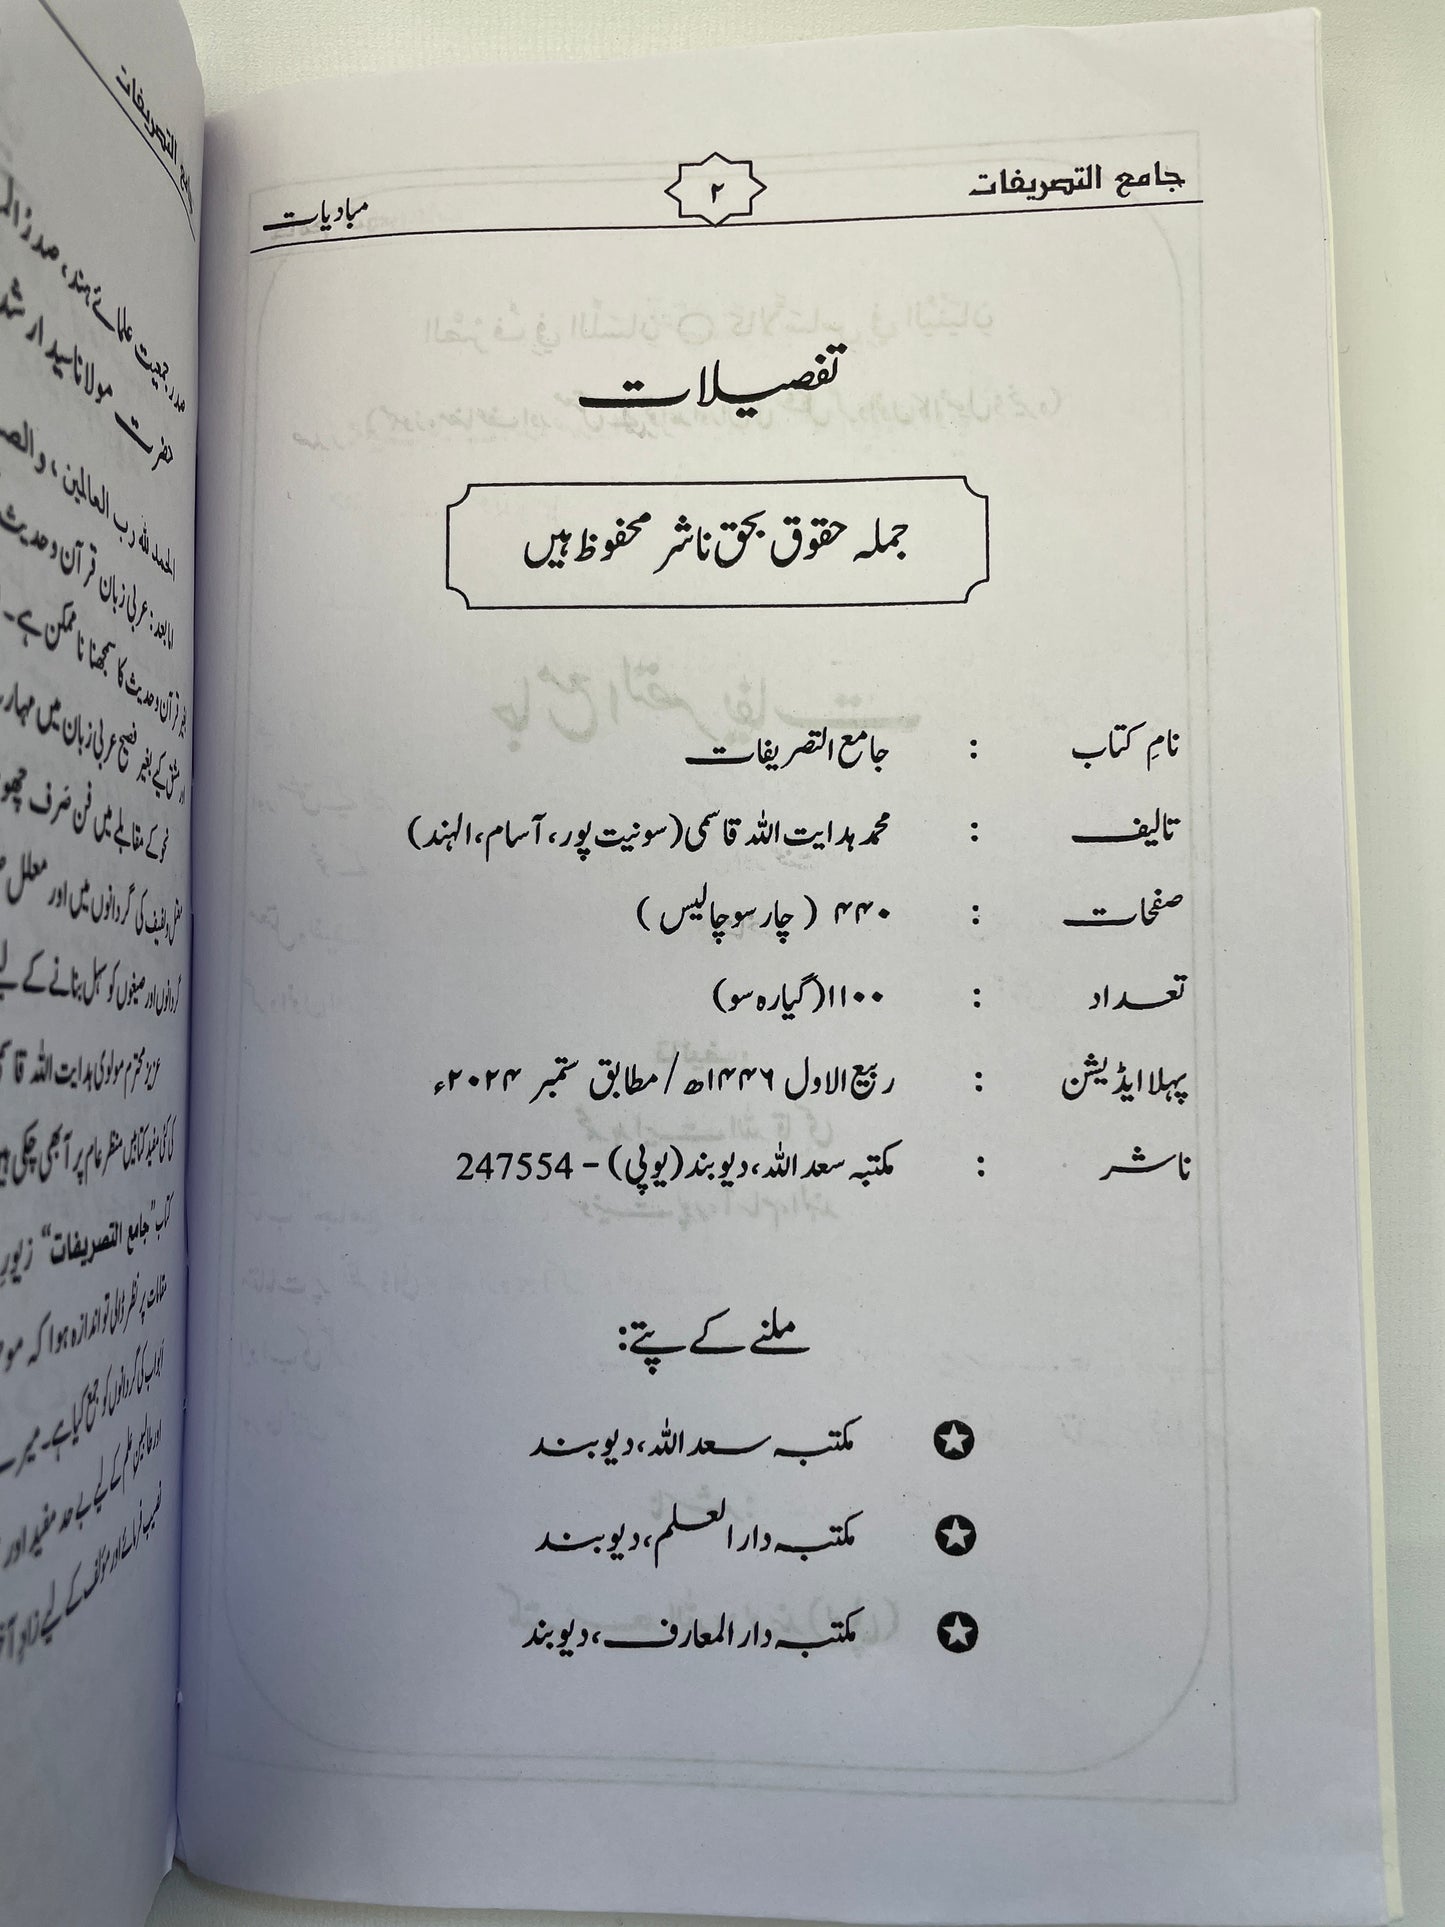 جامع التصریفات
۲
مبادیات
تفصیلات
جملہ حقوق بحق ناشر محفوظ ہیں
نامِ کتاب : جامع التصریفات
تالیف : محمد ہدایت اللہ قاسمی (سونیت پور، آسام، الہند)
صفحات : ۴۴۰ (چار سو چالیس)
تعداد : ۱۱۰۰ (گیارہ سو)
پہلا ایڈیشن : ربیع الاول ۱۴۴۶ھ / مطابق ستمبر ۲۰۲۴ء
ناشر : مکتبہ سعد اللہ، دیوبند (یوپی) – 247554
ملنے کے پتے:
مکتبہ سعد اللہ، دیوبند
مکتبہ دار العلم، دیوبند
مکتبہ دار المعارف، دیوبند
جامع التصریفات
صدر جمعیت علمائے ہند،
حضرت مولانا سید ارشد
الحمد للہ رب العالمین، و
اما بعد: عربی زبان قرآن و حدیث
قرآن و حدیث کا سمجھنا ناممکن ہے۔
کے بغیر فصیح عربی زبان میں
نحو کے مقابلے میں فن صَرف
کی گردانوں میں اور معلل
گردانوں اور صیغوں کو سہل بنانے کے
عزیز محترم مولوی ہدایت اللہ
کی کئی مفید کتابیں منظر عام پر آ بھی چکی
کتاب "جامع التصریفات"
مقامات پر نظر ڈالی تو اندازہ ہوا کہ
ابواب کی گردانوں کو جمع کیا ہے۔
علم کے لیے بے حد مفید اور
اور مؤلف کے لیے زادِ